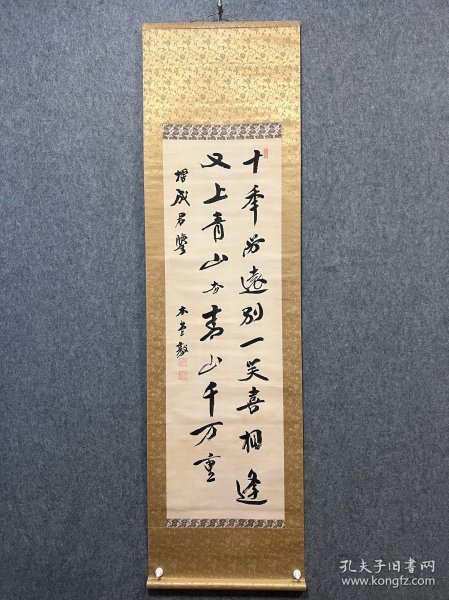 十年勞遠別一笑喜相逢
又上青山去青山千万重
成君
木堂毅
孔夫子旧书网
www.kongfz.com